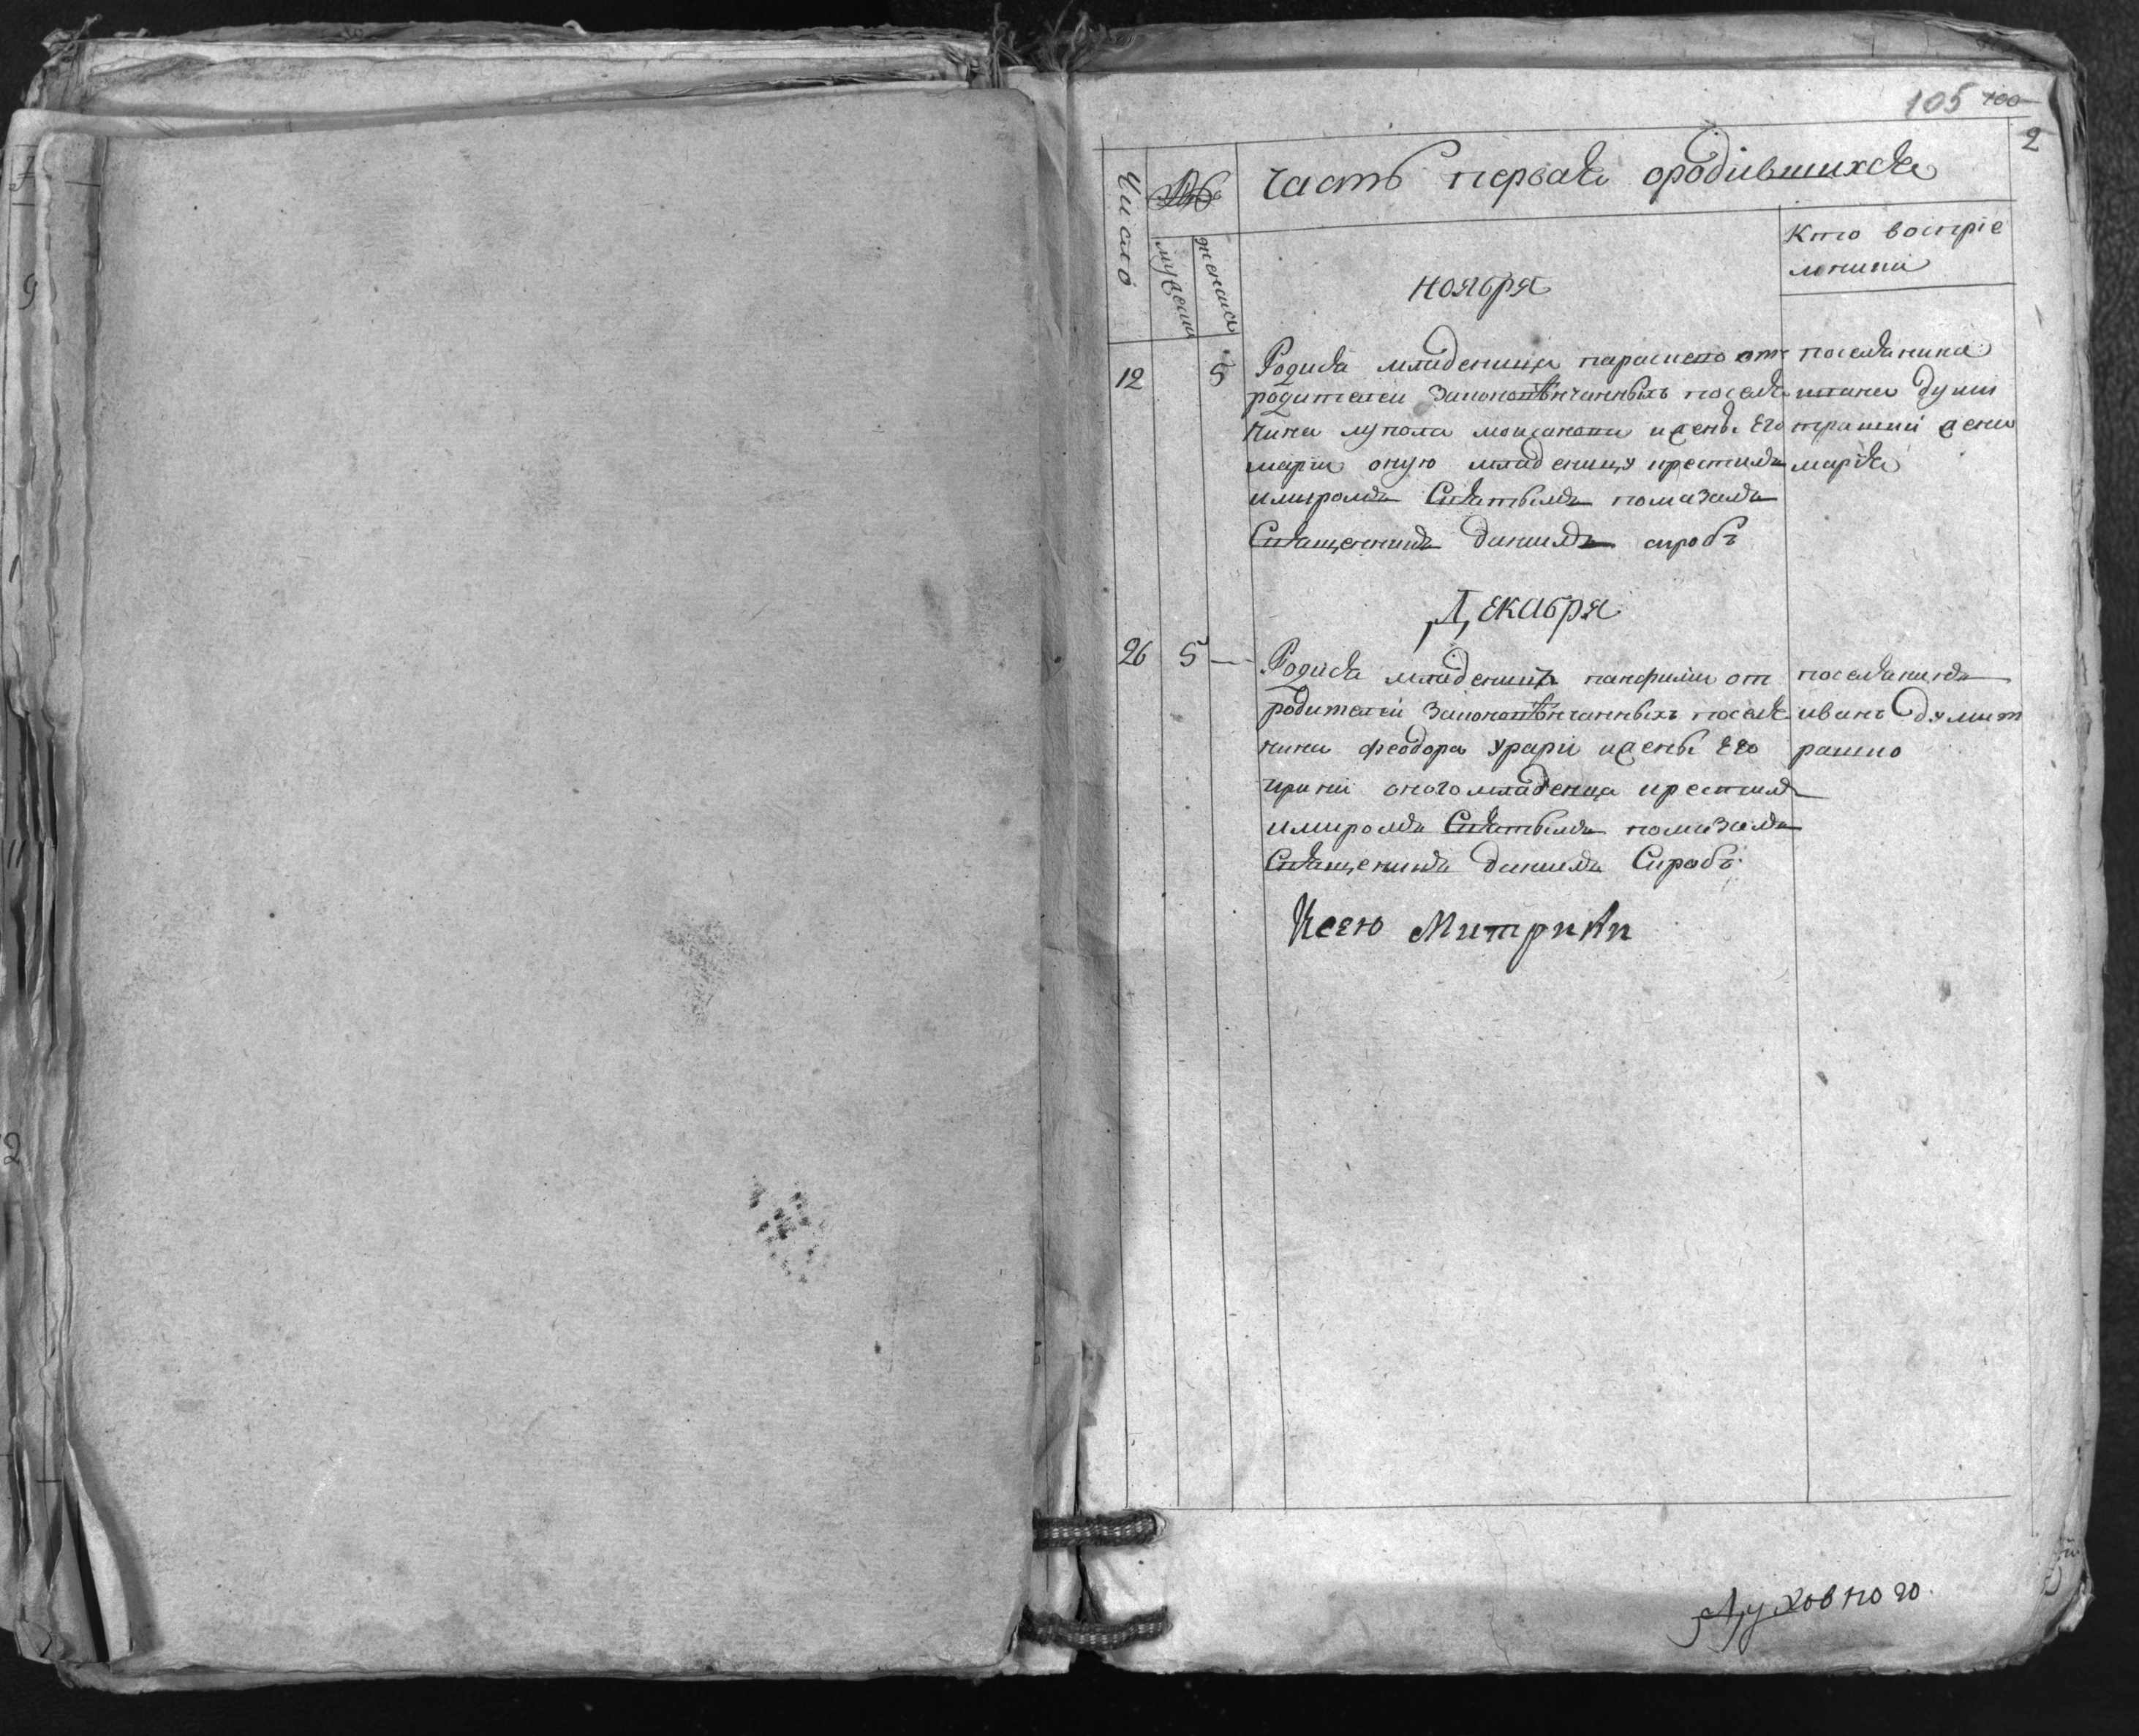 105 100
2
Число
№
мужеска
женска
часть первая ородившихся
Кто воспріе
мники
ноября
12
5
Родися младеница параскева отъ
родителей законовѣнчанныхъ поселя
нина лупола и жены его
маріи оную младеницу крестилъ
и миромъ Святымъ помазалъ
Священникъ даниилъ сировъ
поселянина
жена
марія
Декабря
26
5 —
Родися младенецъ панфилій от
родителей законовѣнчанныхъ поселя
нина феодора урари и жены его
ирини оного младенца крестилъ
и миромъ Святымъ помазалъ
Священникъ даниилъ Сировъ
поселянинъ
иванъ думит
рашко
Исею Митрики
Духовного